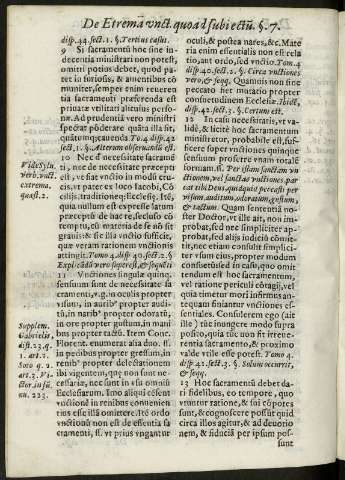 De Etremā vnct. quoad subiectū. §. 7.
disp. 44. sect. 1. §. Tertius casus.
9 Si sacramentū hoc sine in-
decentia ministrari non potest,
omitti potius debet, quod pa-
tet in furiosis, & amentibus cō
muniter, semper enim reueren
tia sacramenti præferenda est
priuatæ vtilitati alicuius perso-
næ. Ad prudentiā vero ministri
spectat ponderare quāta illa sit,
quāte nocumenta. To. 4. disp. 42
sect. 1. §. Alterum obseruandū est.
10 Nec est necessitate sacramē
ti, nec de necessitate præcepti
est, vt fiat vnctio in modū cru-
cis, vt patet ex loco Iacobi, Cō
cilijs, traditioneq; Ecclesię. Itē,
quia nullum est expresse latum
præceptū de hac re, secluso cō
temptu, cū materia de se nō sit
grauis: & sic illa vnctio sufficit,
quæ veram rationem vnctionis
attingit. Tomo 4. disp. 40. sect. 2. §
Explicādū vero superest, & sequēti
11 Vnctiones singulæ quinq;
sensuum sunt de necessitate sa-
cramenti, v. g. in oculis propter
visum, in auribꝰ propter auditū,
tū, in naribꝰ propter odoratū,
in ore propter gustum, in mani
bus propter tactū. Item Conc.
Florent. enumerat alia duo. ss.
in pedibus propter gressum, in
renibꝰ propter delectationem
ibi vigentem, quæ non sunt ne-
cessaria, nec sunt in vsu omniū
Ecclesiarum. Imo aliqui cēsent
vnctionē in renibus convenien
tius esse illā omittere. Itē ordo
vnctionū non est de essentia sa-
cramenti. ss. vt prius vngantur
Vide Sylu.
verb. vnct.
extrema.
quæst. 2.
Supplem.
Gabrielis,
disp. 23. q.
1. art. 2.
Soto q. 2.
art. 3. Vi-
ctor. in sū.
nu. 223.
oculi, & postea nares, &c. Mate
ria enim essentialis non est rela
tio, aut ordo, sed vnctio. Tom. 4
disp. 40. sect. 2. §. Circa vnctiones
vero, & seqq. Est tamen ordo
ille seruandus semper propter
consuetudinem Ecclesiæ. Ibidē,
disp. 42. sect. 3. §. Certum est.
12 In casu necessitatis, vt vali-
dè, & licitè hoc sacramentum
ministretur, probabile est, suf-
ficere super vnctiones quinque
sensuum proferre vnam totalē
formam. ss. Per istam sanctam vn
ctionem, vel sanctas vnctiones, par
cat tibi Deus, quidquid peccasti per
visum, auditum, odoratum, gustum,
& tactum. Quam sententiā no-
ster Doctor, vt ille ait, non im-
probat, sed nec simpliciter ap-
probat, sed alijs iudiciū cōmit-
tit, nec etiam consulit simplici-
ter vsum eius, propter modum
consuetū sed in casu, quo omit-
tendum est hoc sacramentum,
vel ratione periculi cōtagij, vel
quia timetur mori infirmus an-
tequam finiantur vnctiones es-
sentiales. Consulerem ego (ait
ille) vti innungere modo supra
posito, quia tūc non fit irreue-
rentia sacramento, & proximo
valde vtile esse potest. Tomo 4.
disp. 42. sect. 3. §. Solum occurrit,
& seqq.
13 Hoc sacramentū debet da-
ri fidelibus, eo tempore, quo
vtuntur ratione, & sui cōpotes
sunt, & cognoscere possūt quid
circa illos agitur, & ad deuotio
nem, & fiduciā per ipsum pos-
sunt